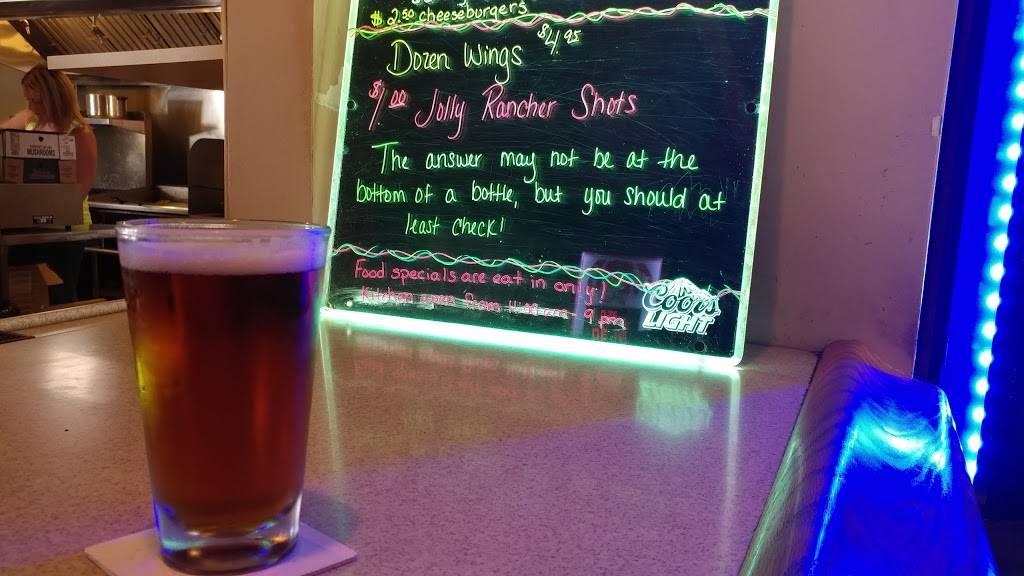 $2.50 cheeseburgers
Dozen Wings $4.95
$1.00 Jolly Rancher Shots
The answer may not be at the
bottom of a bottle, but you should at
least check!
Food specials are eat in only!
Kitchen 9 pm
Coors
LIGHT
MUSHROOMS